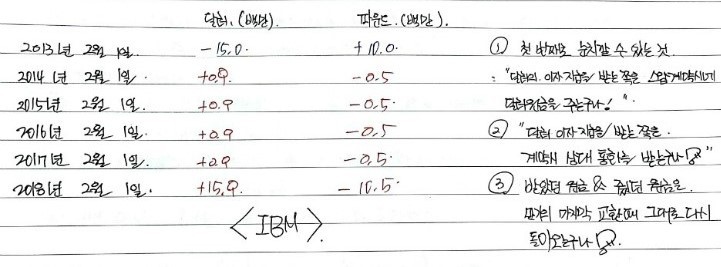 달러. (백만) 파운드. (백만).
2013년 2월 1일. -15.0. +10.0. ① 첫 번째로 눈치챌 수 있는 것.
2014년 2월 1일. +0.9. -0.5 : "달러의 이자지급을 받는 쪽은 스왑계약시에
2015년 2월 1일. +0.9 -0.5. 달러원금을 주는구나!".
2016년 2월 1일. +0.9 -0.5 ② "달러 이자지급을 받는 쪽은.
2017년 2월 1일. +0.9 -0.5. 계약시 상대 통화를 받는구나"
2018년 2월 1일. +15.9. -10.5. ③ 받았던 원금 & 줬던 원금은.
<IBM>. 마지막 교환때 그대로 다시
돌아오는구나.